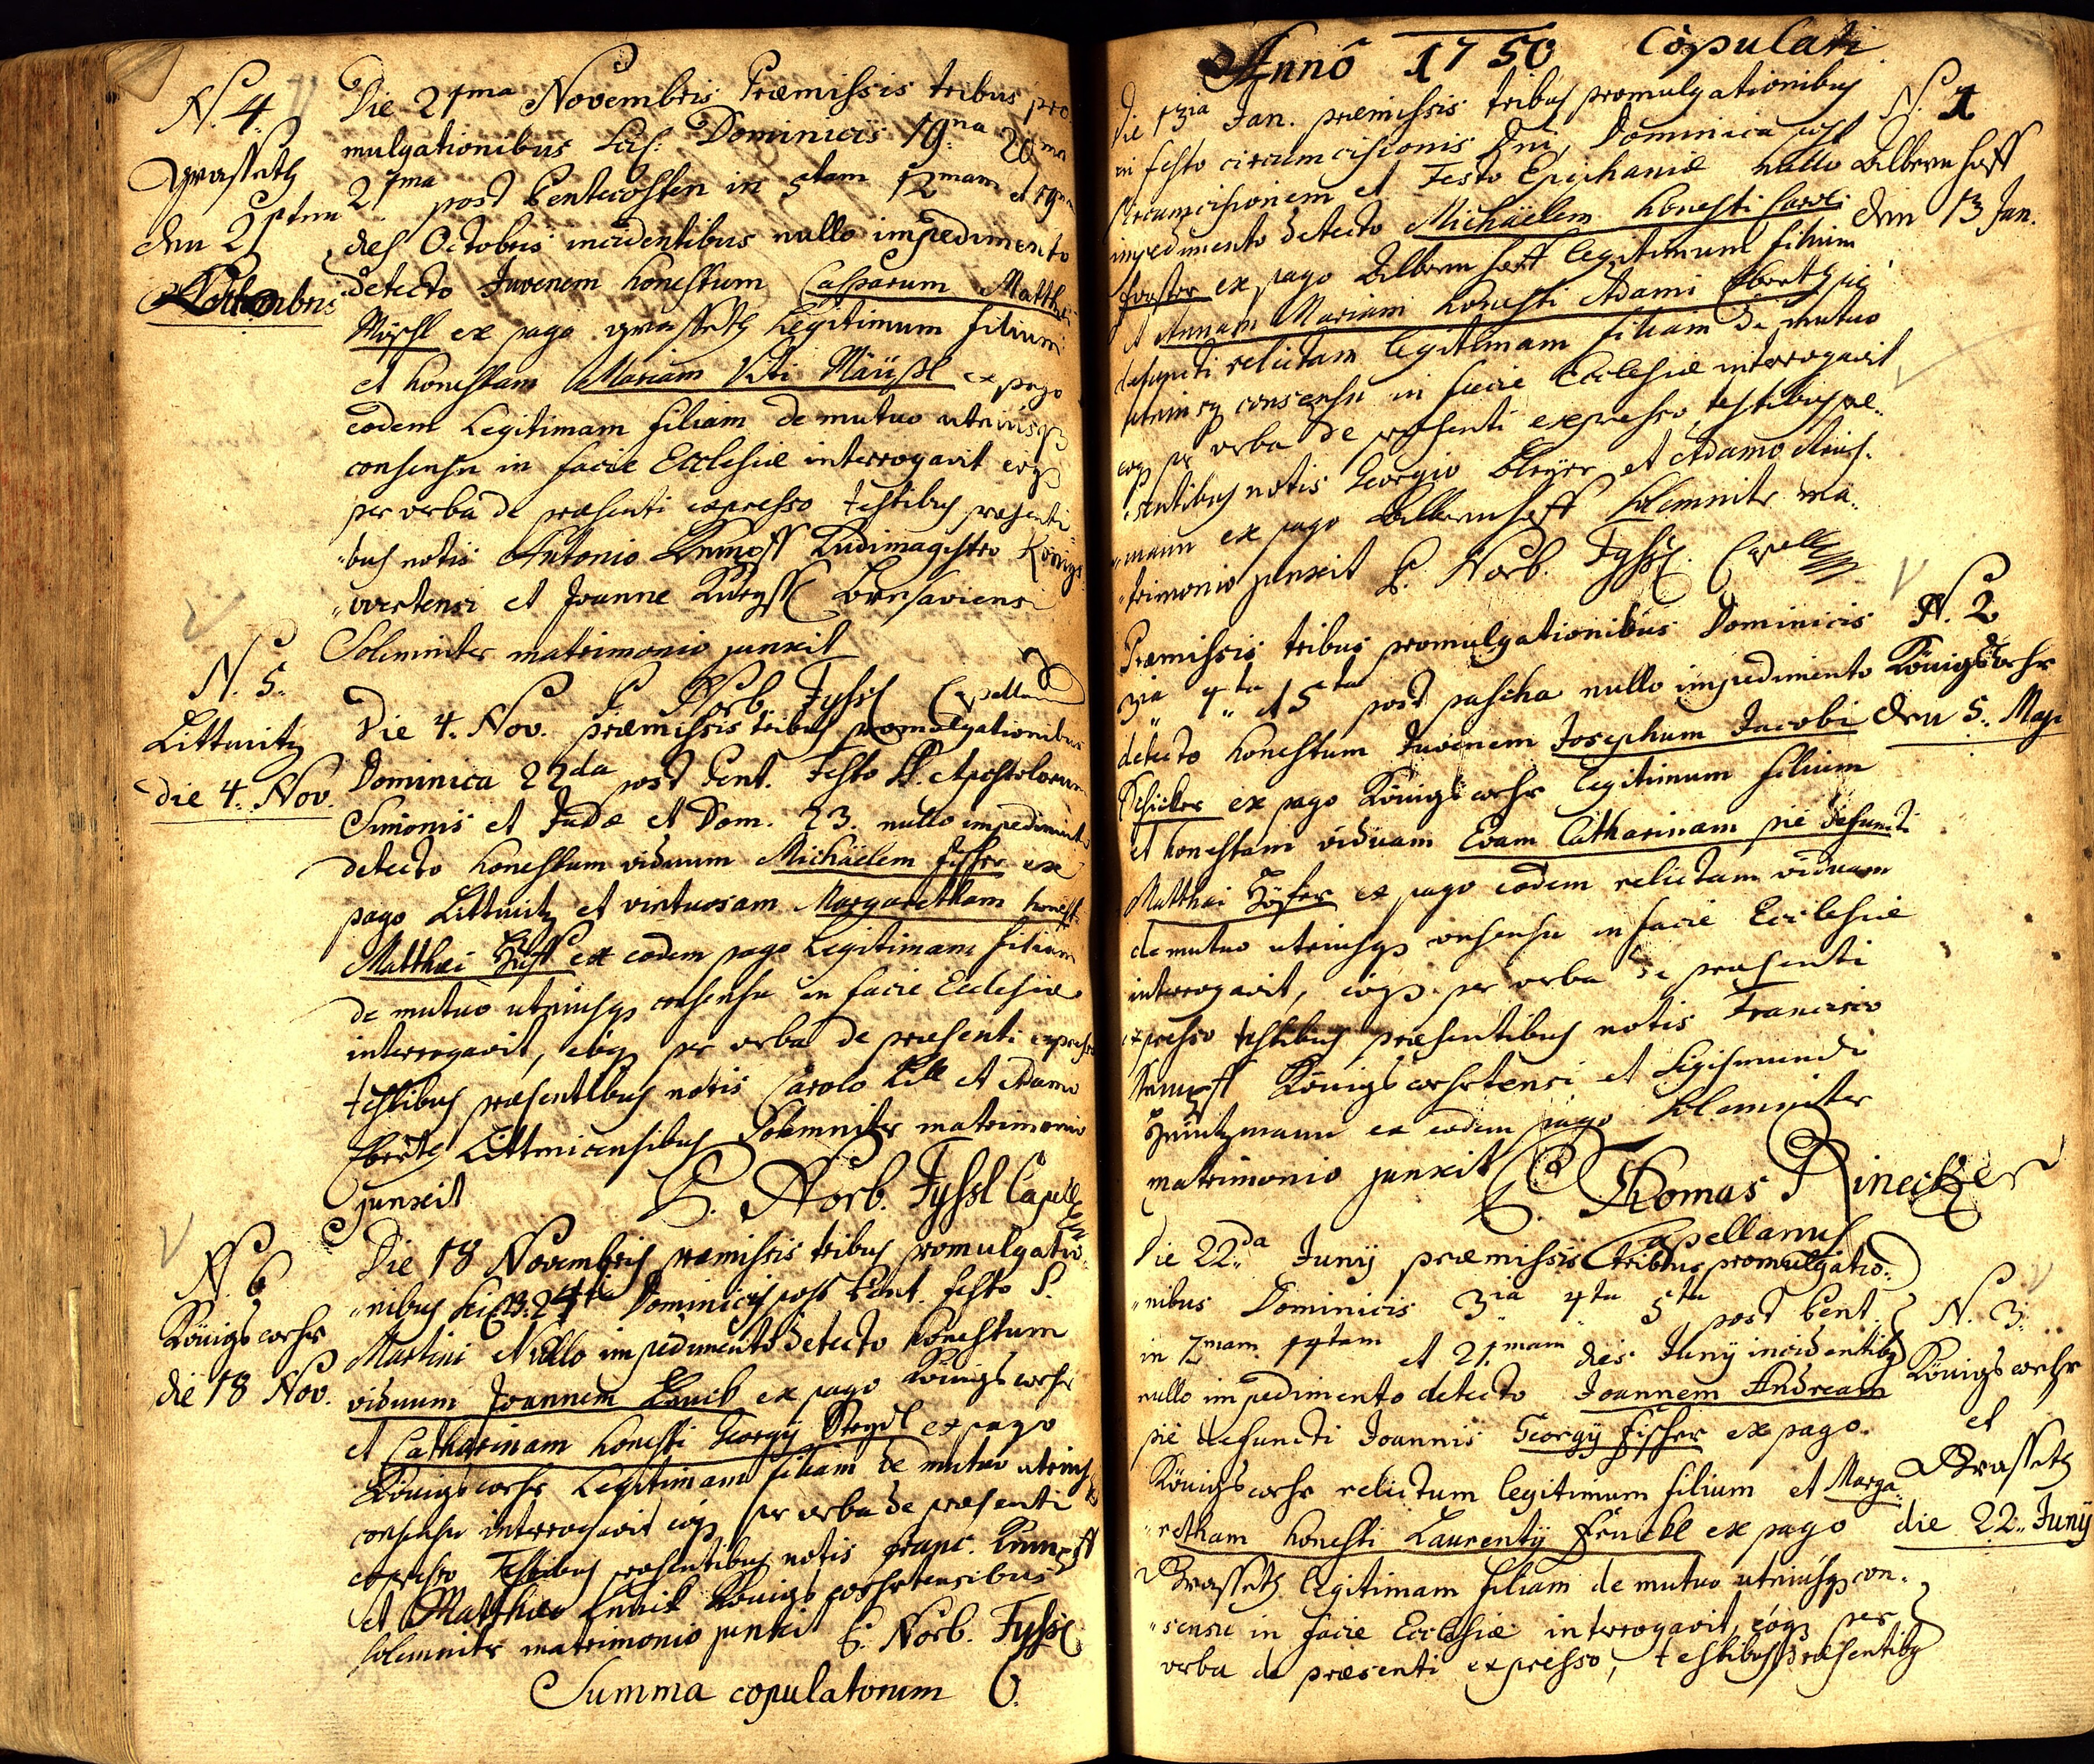 N. 4.
Grasseth
den 21ten
Octobris
Die 21ma Novembris Præmissis tribus pro
mulgationibus Dominicis 19na 20ma
21ma post Pentecosten in 5tam 12mam et 19nam
dies Octobris incidentibus nullo impedimento
detecto Juvenem honestum Casparum Matthæi
ex pago Grasseth Legitimum filium
et honestam Mariam Viti Mäüßl ex pago
eodem Legitimam filiam de mutuo utriusq
consensu in facie Ecclesiæ interrogavit eoq
per verba de præsenti expresso testibus præsenti
bus notis Antonio Kumpff Ludimagistro Königs
wertensi et Joanne
Solemniter matrimonio junxit
P. Norb. Fyssl Capellan
N. 5.
Littmitz
die 4. Nov.
Die 4. Nov. præmissis tribus promulgationibus
Dominica 22da post Pent. Festo SS. Apostolorum
Simonis et Judæ et Dom. 23. nullo impedimento
detecto honestum viduum Michäelem fisher ex
pago Littmitz et virtuosam Margaretham honesti
Matthæi ex eodem pago Legitimam filiam
de mutuo utriusq consensu in facie Ecclesiæ
interrogavit, eoq per verba de præsenti expresso
testibus præsentibus notis Carolo Lill et Adamo
Eberth Littmicensibus Solemniter matrimonio
junxit P. Norb. Fyssl Capell
N. 6
Königswehr
die 18 Nov.
Die 18 Novembris præmissis tribus promulgatio
nibus 24ta Dominicis post Pent. festo S.
Martini Nullo impedimento detecto honestum
viduum Joannem Lauck ex pago Königswehr
et Catharinam honesti Georgÿ Stegl ex pago
Königswehr Legitimam filiam de mutuo utriusq
consensu interrogavit eoq per verba de præsenti
expresso Testibus præsentibus notis Franc. Kumpff
et Matthæo Königswehrtensibus
solemniter matrimonio junxit P. Norb. Fyssl
Summa copulatorum 6.
Annô 1750 Copulati
N. 1
Albernhoff
den 13 Jan.
Die 13ia Jan. præmissis tribus promulgationibus
in festo circumcisionis Dni, Dominica post
Circumcisionem et Festo Epiphaniæ nullo
impedimento detecto Michäelem honesti Caroli
forster ex pago Albernhoff legitimum filium
et Annam Mariam honesti Adami Eberth pie
defuncti relictam legitimam filiam de mutuo
utriusq consensu in facie Ecclesiæ interrogavit
eoq per verba de præsenti expresso, testibus præ
sentibus notis Georgio Bleÿer et Adamo
mann ex pago Albernhoff solemniter ma
trimonio junxit P. Norb. Fyssl. Capell
N. 2
Königswehr
den 5. Maji
Præmissis tribus promulgationibus Dominicis
3ia 4ta et 5ta post pascha nullo impedimento
detecto honestum Juvenem Josephum Jacobi
Schicker ex pago Königswehr legitimum filium
et honestam viduam Evam Catharinam pie defuncti
Matthæi Höfer ex pago eodem relictam viduam
de mutuo utriusq consensu in facie Ecclesiæ
interrogavit, eoq per verba de præsenti
expresso testibus præsentibus notis Francisco
Kumpff Königswehrtensi et Sigismundo
Heintzmann ex eodem pago solemniter
matrimonio junxit P. Thomas Rinecker
Capellanus
N. 3.
Königswehr
et
Grasseth
die 22. Junÿ
Die 22da Junÿ præmissis tribus promulgatio
nibus Dominicis 3ia 4ta 5ta post Pent.
in 7mam 14tam et 21mam dies Junÿ incidentibq
nullo impedimento detecto Joannem Andream
pie defuncti Joannis Georgÿ fisher ex pago
Königswehr relictum legitimum filium et Marga
retham honesti Laurentÿ Frückl ex pago
Grasseth legitimam filiam de mutuo utriusq con
sensu in facie Ecclesiæ interrogavit, eoq per
verba de præsenti expresso, testibus præsentibq